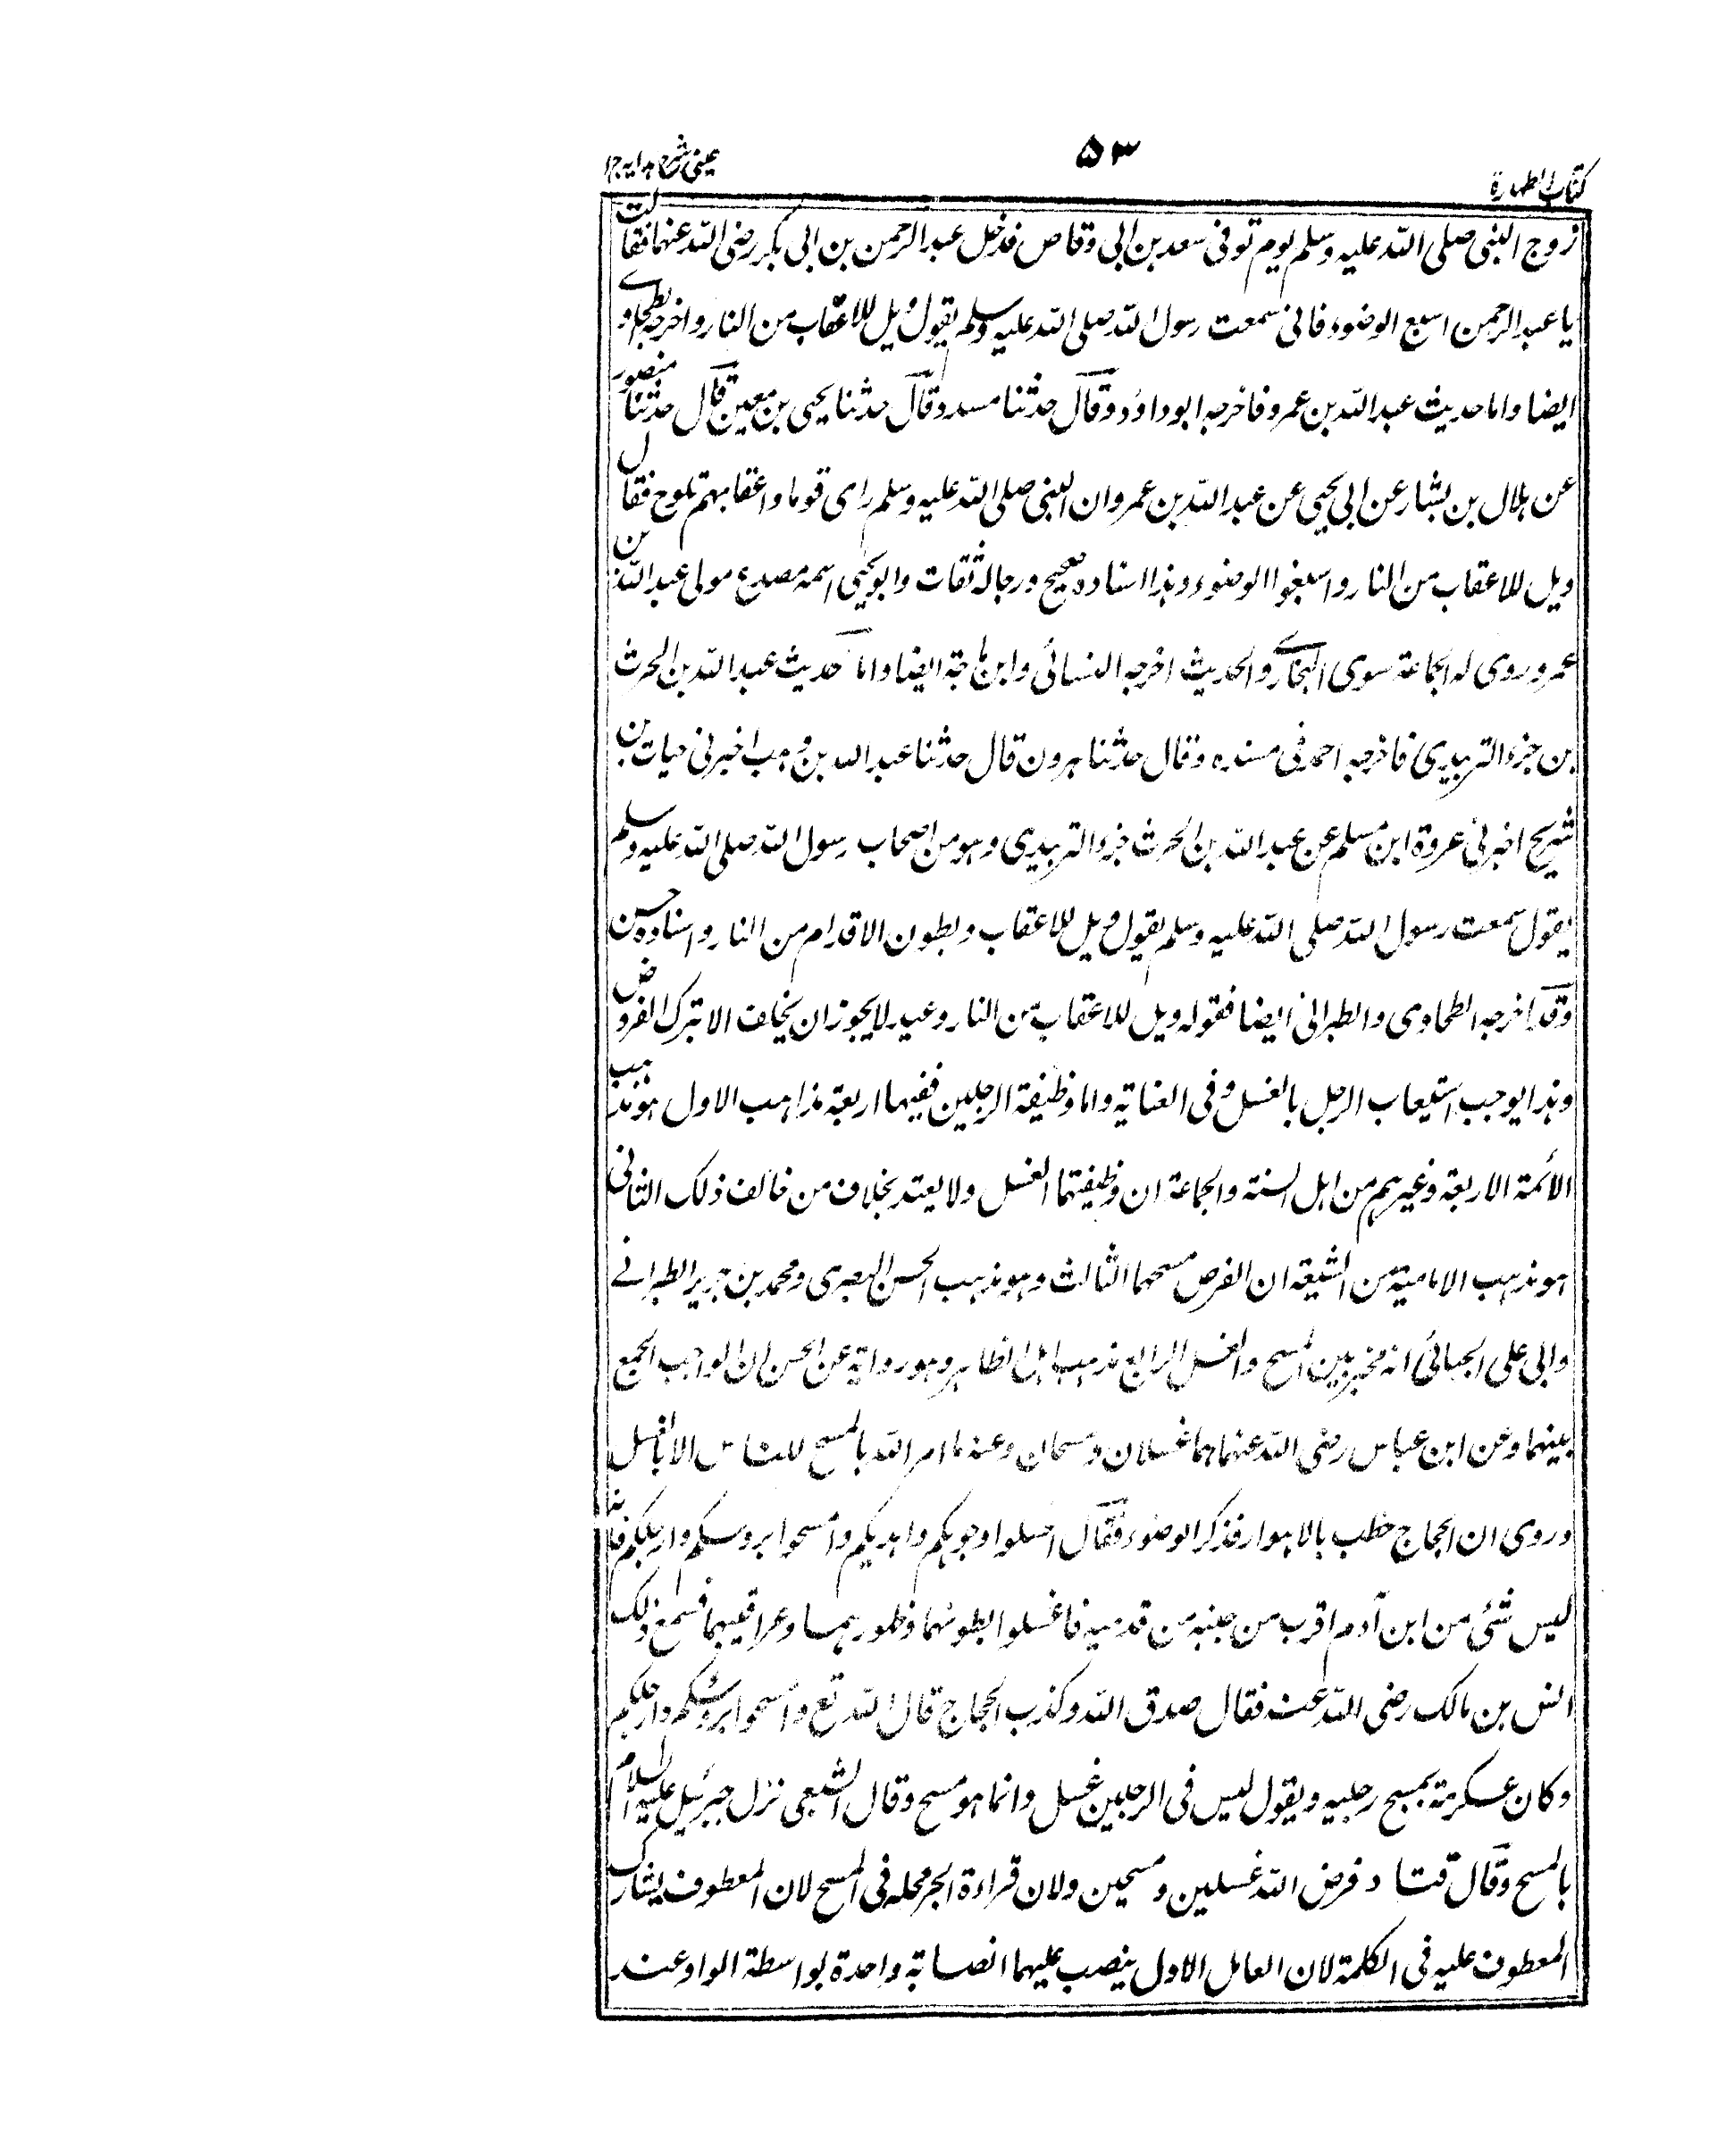 كتاب الطهارة
٥٣
عينى شرح هدايه ج ١
زوج النبى صلى الله عليه وسلم يوم توفى سعد بن ابى وقاص فدخل عبد الرحمن بن ابى بكر رضى الله عنها فقالت
يا عبد الرحمن اسبغ الوضوء فانى سمعت رسول الله صلى الله عليه وسلم يقول ويل للاعقاب من النار واخرجه الطحاوى
ايضا واما حديث عبد الله بن عمرو فاخرجه ابو داؤد وقال حدثنا مسدد وقال حدثنا يحيى بن معين قال حدثنا منصور
عن هلال بن بشار عن ابى يحيى عن عبد الله بن عمرو ان النبى صلى الله عليه وسلم راى قوما واعقابهم تلوح فقال
ويل للاعقاب من النار واسبغوا الوضوء وهذا اسناده صحيح ورجاله ثقات وابو يحيى اسمه مصدع مولى عبد الله بن
عمرو روى له الجماعة سوى البخارى والحديث اخرجه النسائى وابن ماجة ايضا واما حديث عبد الله بن الحرث
بن جزء الزبيدى فاخرجه احمد فى مسنده وقال حدثنا هرون قال حدثنا عبد الله بن وهب اخبرنى حيات بن
شريح اخبرنى عروة ابن مسلم عن عبد الله بن الحرث جزء الزبيدى وهو من اصحاب رسول الله صلى الله عليه وسلم
يقول سمعت رسول الله صلى الله عليه وسلم يقول ويل للاعقاب وبطون الاقدام من النار واسناده حسن
وقد اخرجه الطحاوى والطبرانى ايضا فقوله ويل للاعقاب من النار وعيد لا يجوز ان يخلف الا بترك الفروض
وهذا يوجب استيعاب الرجل بالغسل وفى الغناية واما وظيفة الرجلين ففيها اربعة مذاهب الاول هو مذهب
الأئمة الاربعة وغيرهم من اهل السنة والجماعة ان وظيفتهما الغسل ولا يعتد بخلاف من خالف ذلك الثانى
هو مذهب الامامية من الشيعة ان الفرض مسحهما الثالث وهو مذهب الحسن البصرى ومحمد بن جرير الطبرانى
وابى على الجبائى انه مخير بين المسح والغسل الرابع مذهب اهل الظاهر وهو رواية عن الحسن ان الواجب الجمع
بينهما وعن ابن عباس رضى الله عنهما هما غسلان ومسحان وعنه ما امر الله بالمسح للناس الا بالغسل
وروى ان الحجاج خطب بالاهواز فذكر الوضوء فقال اغسلوا وجوهكم وايديكم وامسحوا بروسكم وارجلكم فانه
ليس شئى من ابن آدم اقرب من جنبه من قدميه فاغسلوا بطونهما وظهورهما وعراقيبهما فسمع ذلك
انس بن مالك رضى الله عنه فقال صدق الله وكذب الحجاج قال الله تع وامسحوا بروسكم وارجلكم
وكان عكرمة يمسح رجليه ويقول ليس فى الرجلين غسل وانما هو مسح وقال الشعبى نزل جبرئيل عليه السلام
بالمسح وقال قتاد فرض الله غسلين ومسحين ولان قراءة الجر محله فى المسح لان المعطوف يشارك
المعطوف عليه فى الكلمة لان العامل الاول ينصب عليهما انصبابة واحدة بواسطة الواو عند